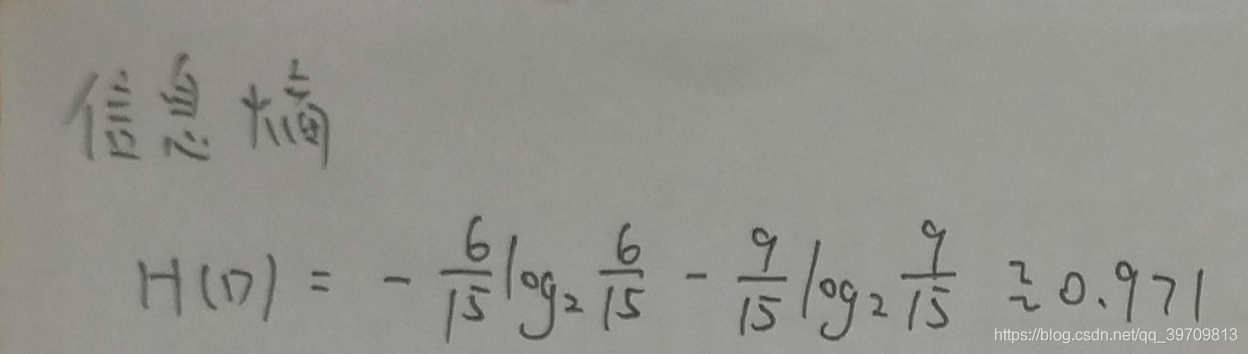 信息熵
H(D) = - 6/15 log₂ 6/15 - 9/15 log₂ 9/15 ≈ 0.971
https://blog.csdn.net/qq_39709813